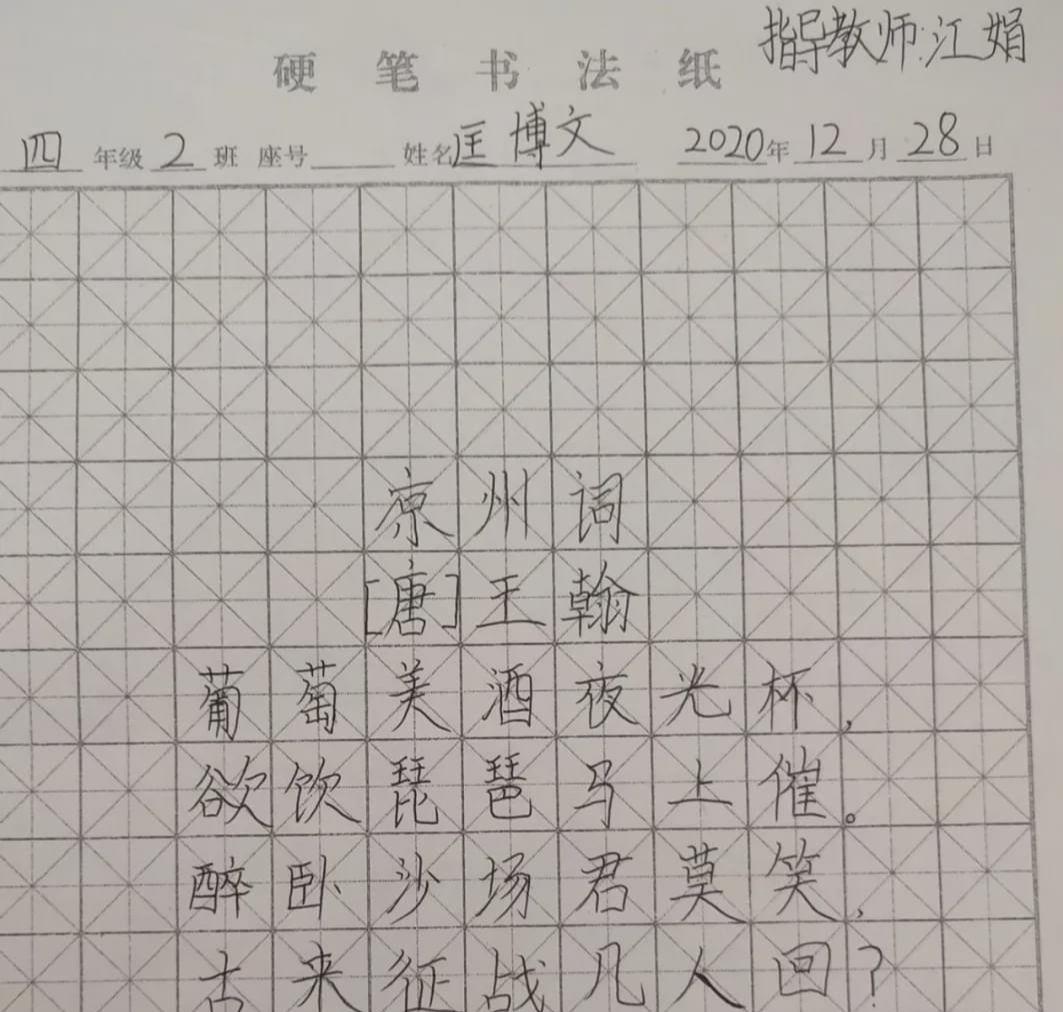 指导教师:江娟
硬笔书法纸
四年级2班 座号 姓名匡博文 2020年12月28日
凉州词
[唐]王翰
葡萄美酒夜光杯,
欲饮琵琶马上催。
醉卧沙场君莫笑,
古来征战几人回?